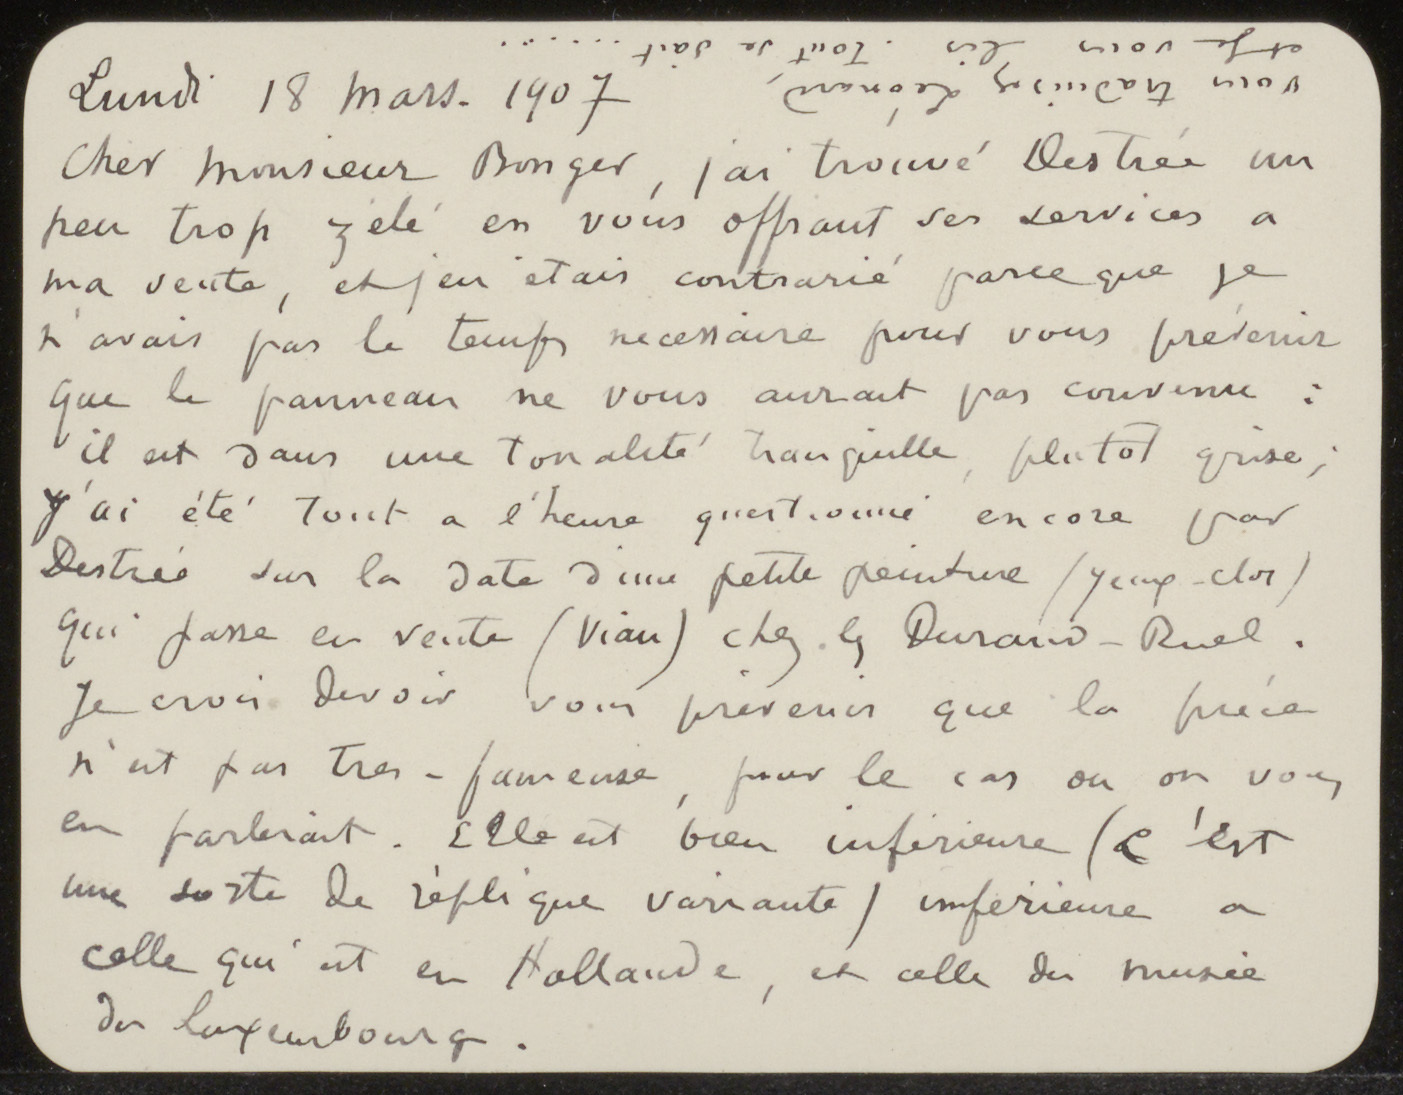 Lundi 18 Mars. 1907
Cher Monsieur Bonger, j'ai trouvé Destrée un
peu trop zélé en vous offrant ses services a
ma vente, et j'en étais contrarié parceque je
n'avais pas le temps necessaire pour vous prévenir
que le panneau ne vous aurait pas convenu :
il est dans une tonalité tranquille, plutôt grise ;
j'ai été tout a l'heure questionné encore par
Destrée sur la date d'une petite peinture (yeux-clos)
qui passe en vente (Vian) chez les Durand-Ruel.
Je crois devoir vous prévenir que la pièce
n'est pas tres-fameuse, pour le cas ou on vous
en parlerait. Elle est bien inférieure (c'est
une sorte de réplique variante) inférieure a
celle qui est en Hollande, et celle du musée
du Luxembourg.
vous traduisez Léonard,
et je vous lis. Tout se sait......